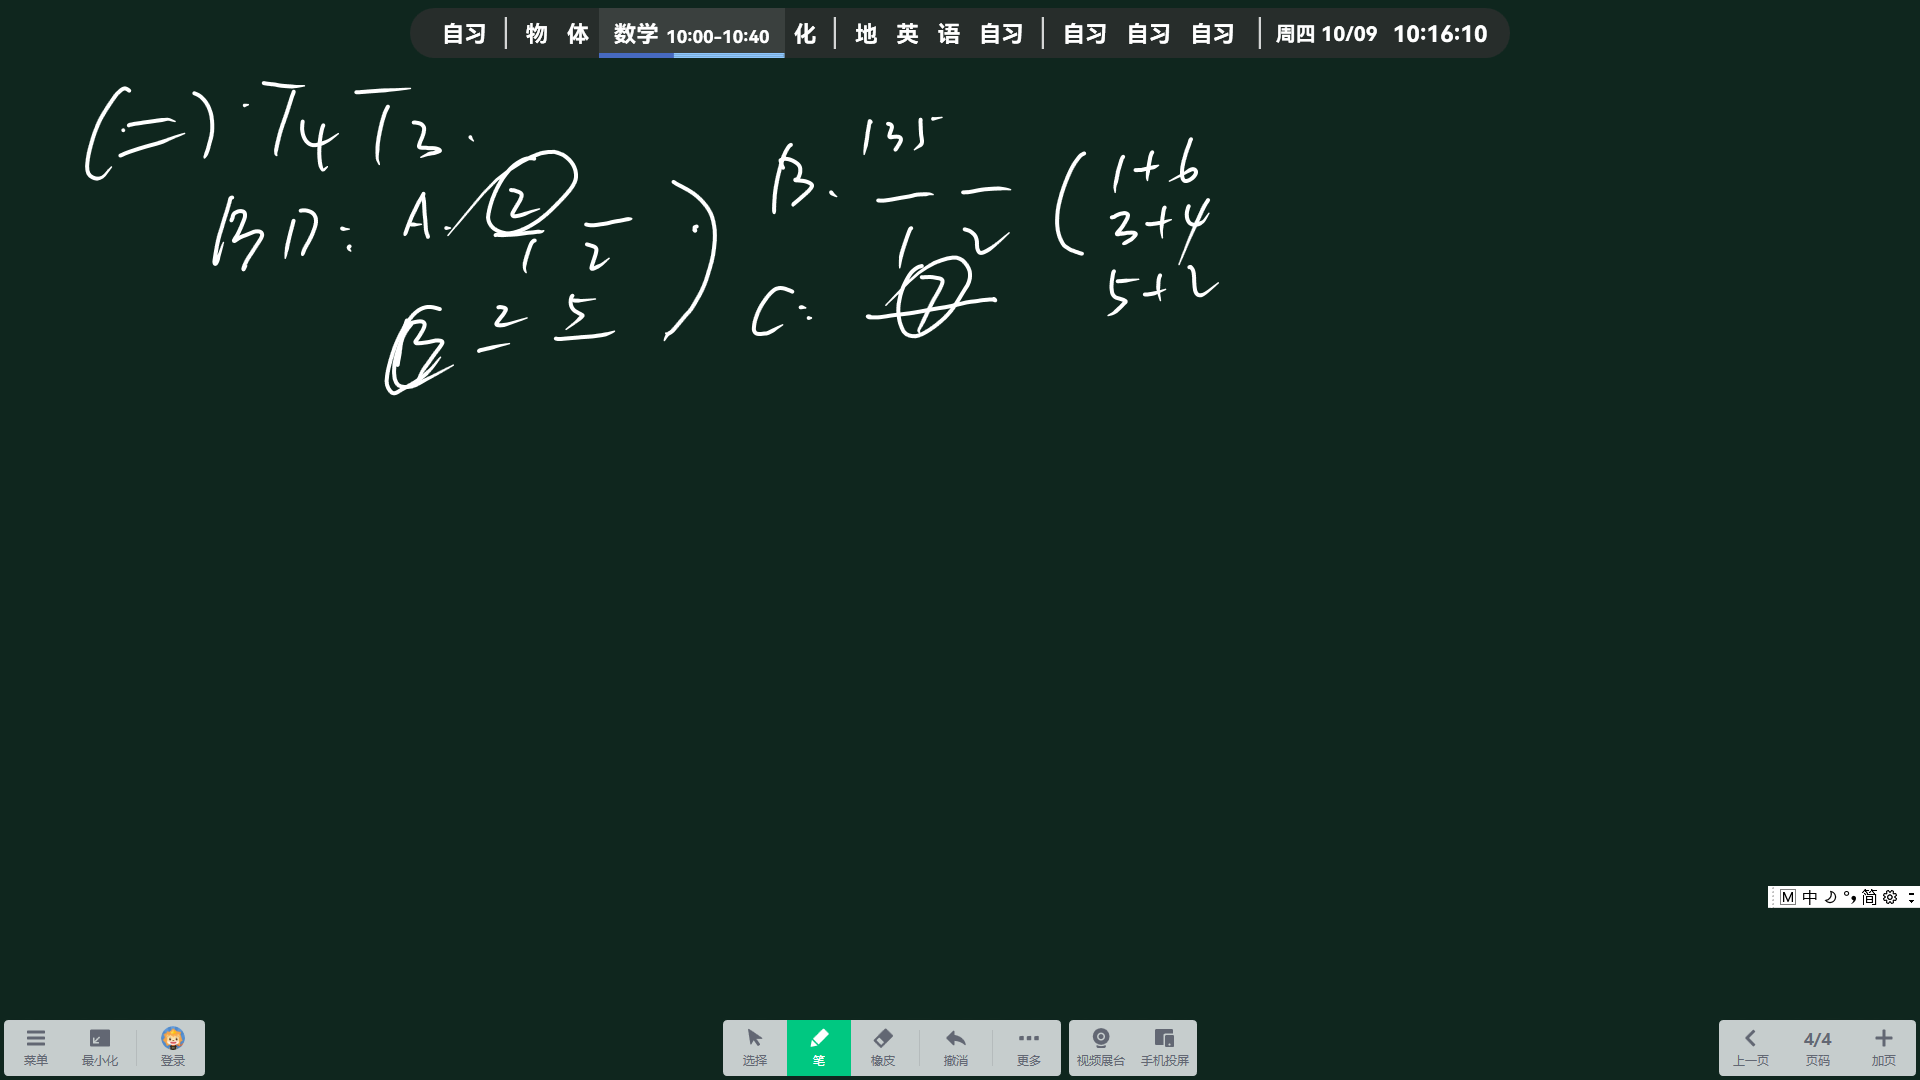 自习 | 物 体 数学 10:00-10:40 化 | 地 英 语 自习 | 自习 自习 自习 | 周四 10/09 10:16:10
(二). T4 T3.
BD: A. 2
1 2
B 2 5
B. 135
1 2
C: 7
1+6
3+4
5+2
M 中 简
菜单 最小化 登录
选择 笔 橡皮 撤消 更多 视频展台 手机投屏
上一页 4/4 页码 加页